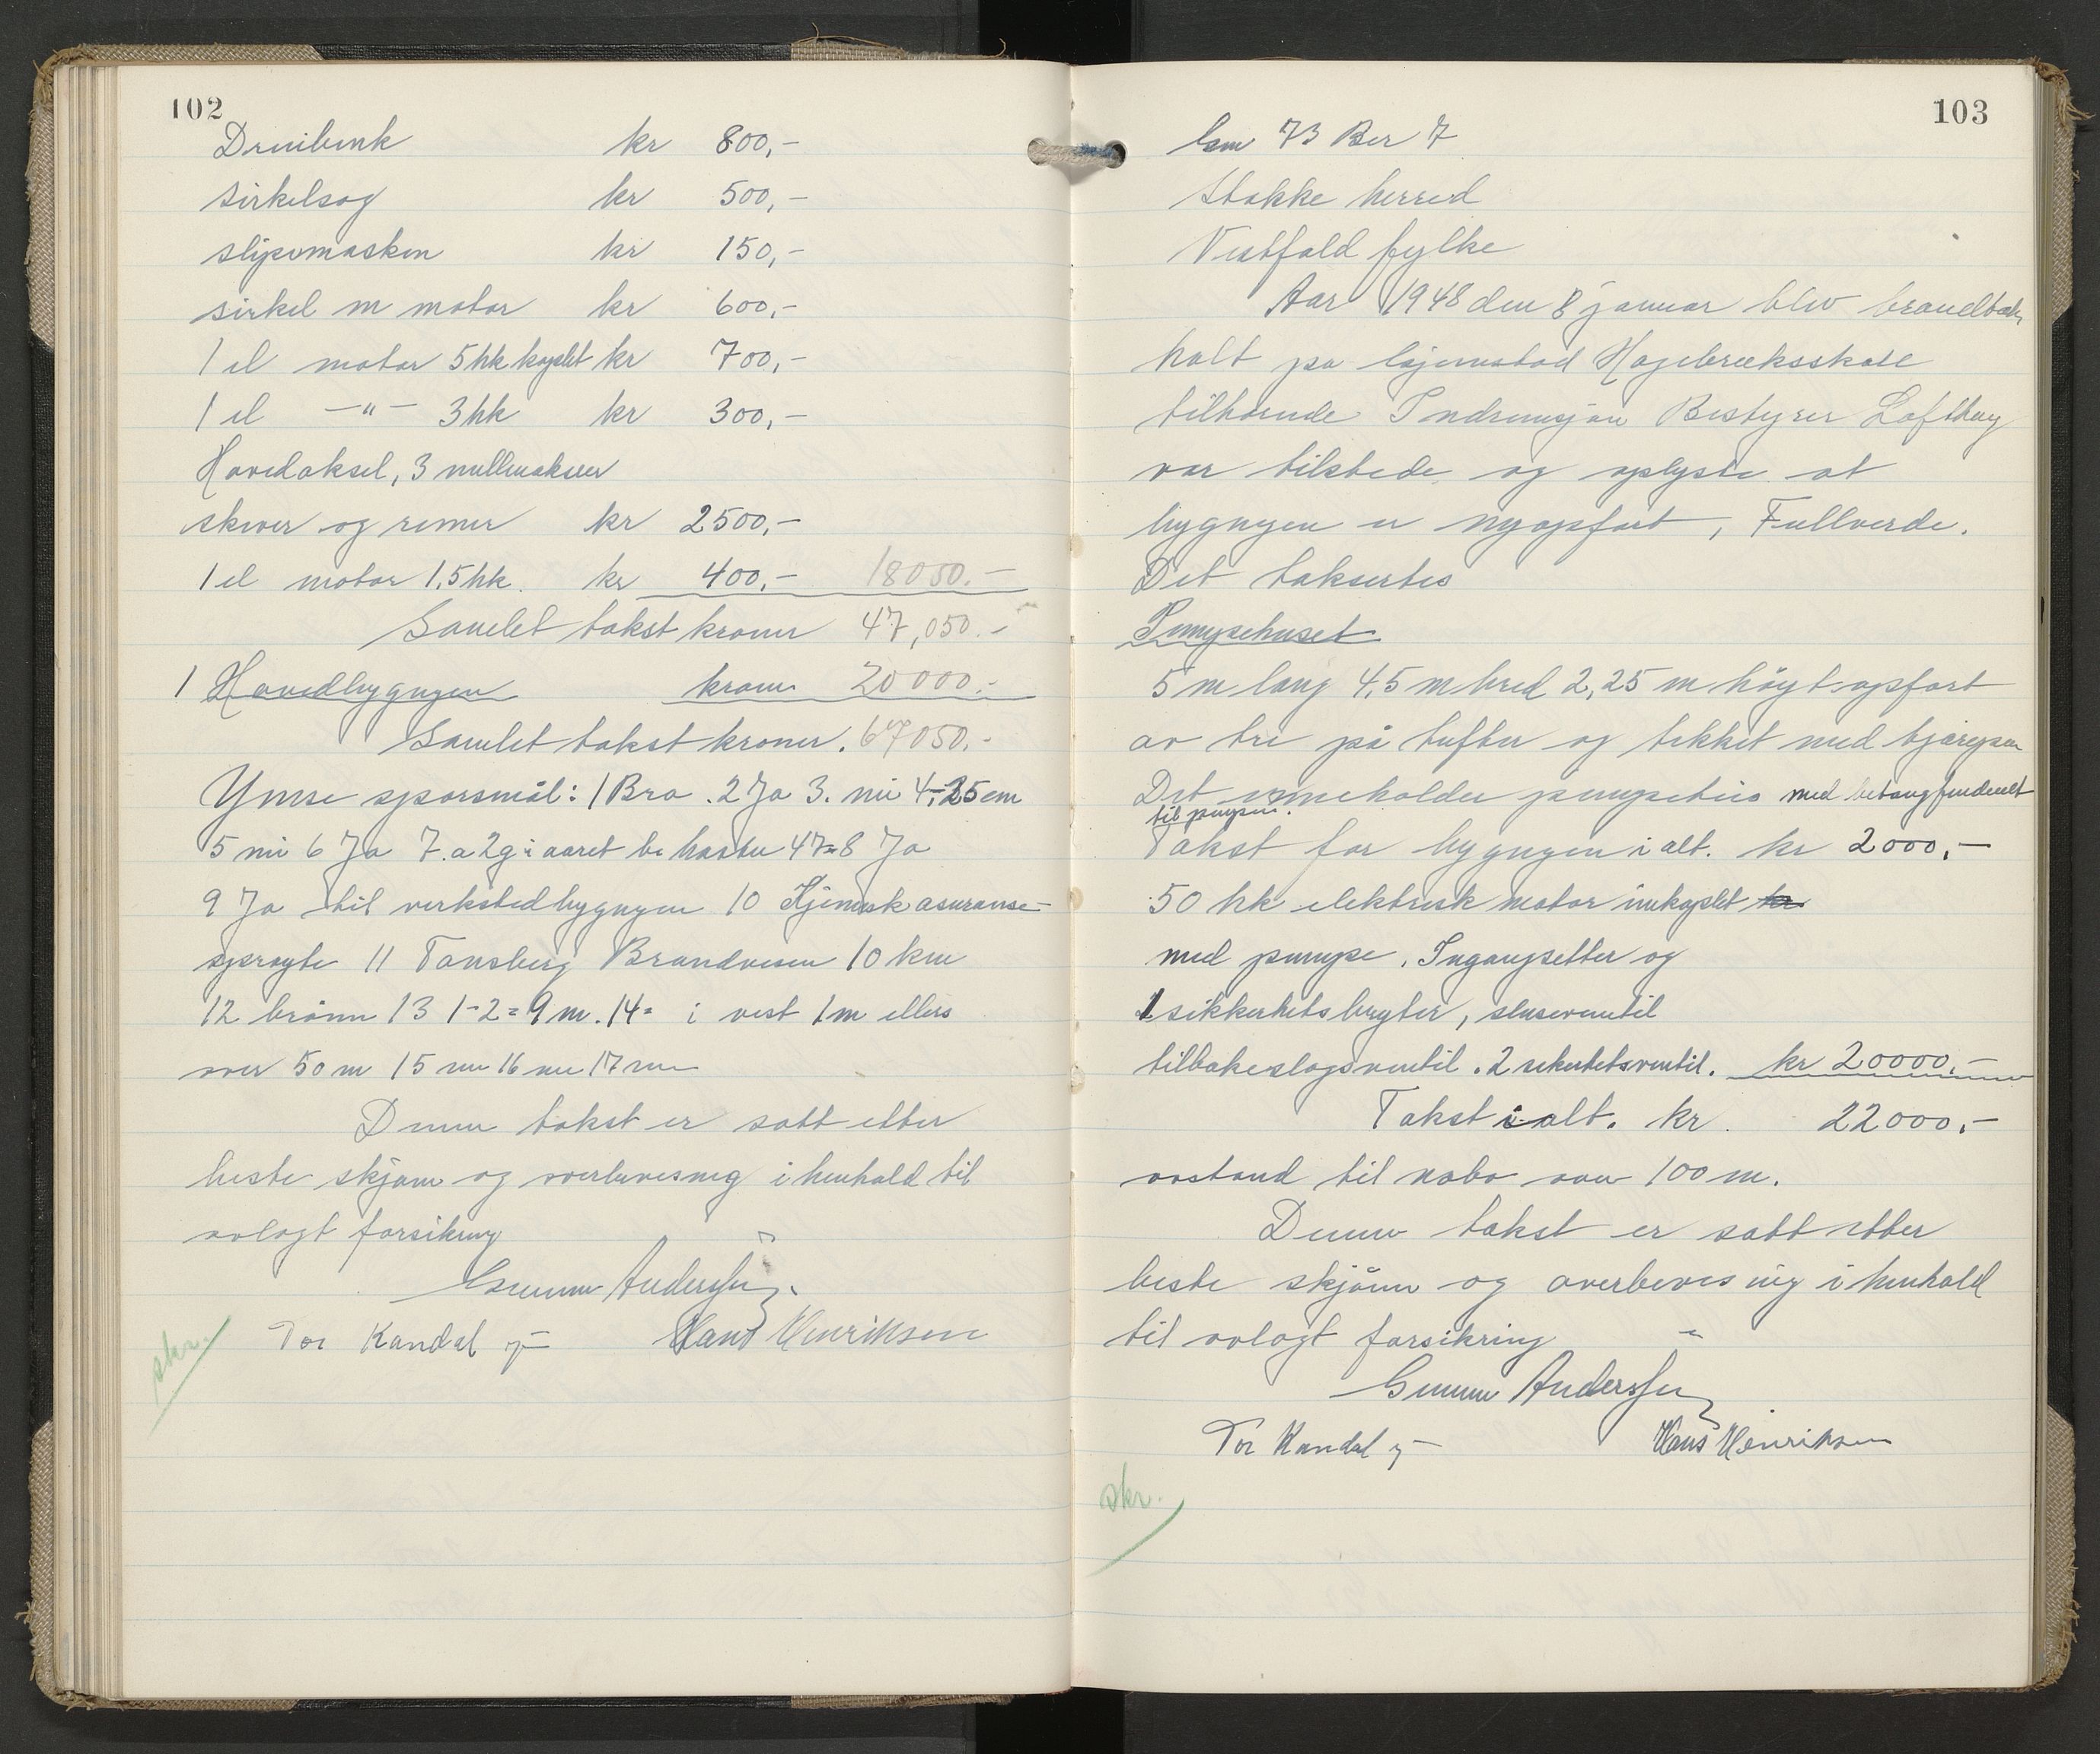 102
Dreiibenk kr 800,-
sirkelsag kr 500,-
slipemaskin kr 150,-
sirkel m motor kr 600,-
1 el motor 5 hk koplet kr 700,-
1 el -"- 3 hk kr 300,-
Hovedaksel, 3 mellemakser
skiver og remer kr 2500,-
1 el motor 1,5 hk. kr 400,- 18050.-
Samlet takst kroner 47,050.-
1 Hovedbygngen kroner 20000.-
Samlet takst kroner. 67050.-
Ymse sporsmål: 1 Bra . 2 Ja 3. nei 4, 25 cm
5 nei 6 Ja 7. a 2 g i aaret 47= 8 Ja
9 Ja til verkstedbygngen 10 asuranse-
sproyte 11 Tønsberg Brandvesen 10 km
12 brönn 13 1-2=9 m. 14= i vest 1 m ellers
over 50 m 15 nei 16 nei 17 nei
Denne takst er satt etter
beste skjønn og overbevisning i henhold til
avlagt forsikring
Gunnar Anderssen
Tor Kandal Hans Henriksen
skr.
103
Gnr 73 Bnr 7
Stokke herred
Vestfold fylke
Aar 1948 den 8 januar blev brandtakst
holt på Gjennestad Hagebruksskole
tilhørende Indremisjon Bestyrer Lofthug
var tilstede og oplyste at
bygngen er nyopført, Fullverde.
Det taksertes
Pumpehuset
5 m lang 4,5 m bred 2,25 m høyt opført
av tre på tufter og tekket med
Det inneholder med betongfundament
til pumpen.
Takst for bygngen i alt. kr 2000,-
50 hk elektrisk motor innkoplet kr
med pumpe. Ingangsetter og
1 sikkerhetsbryter, sluseventil
tilbakeslagsventil. 2 sikerhetsventil. kr 20000,-
Takst i alt. kr. 22000,-
avstand til nabo over 100 m.
Denne takst er satt etter
beste skjönn og overbevisning i henhold
til avlagt forsikring
Gunnar Anderssen
Tor Kandal Hans Henriksen
skr.